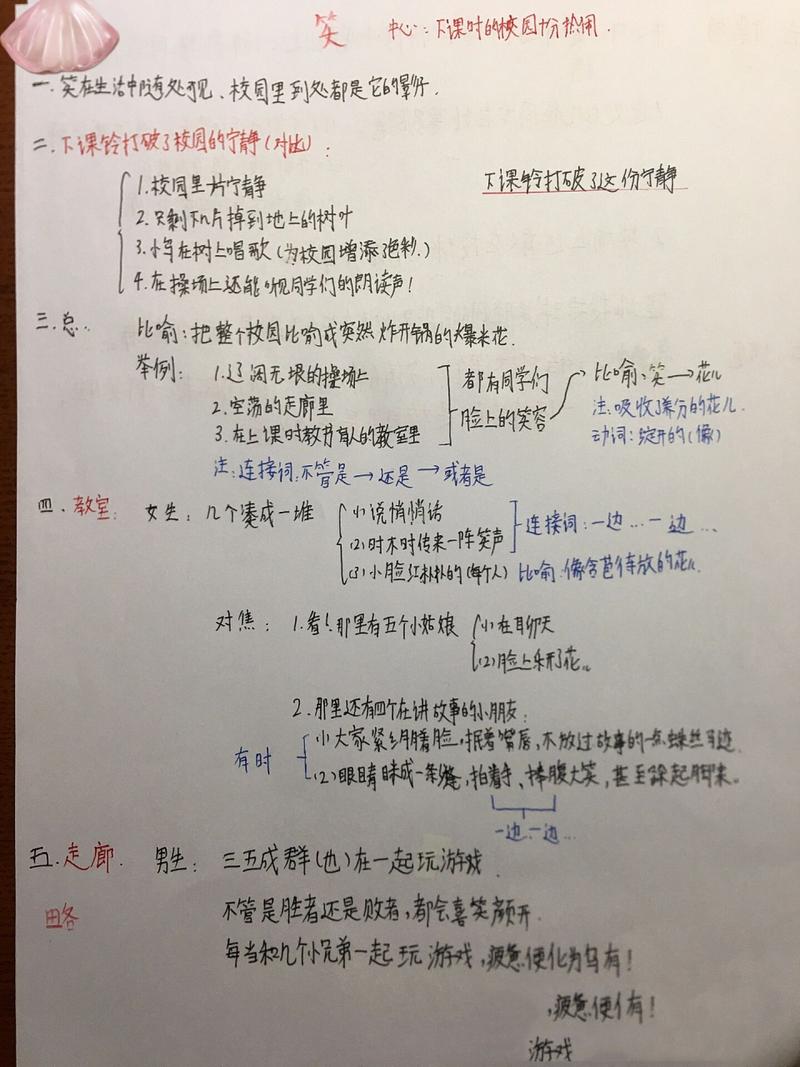 笑 中心：下课时的校园十分热闹.
一.笑在生活中随处可见、校园里到处都是它的影子.
二.下课铃打破了校园的宁静(对比)：
1.校园里一片宁静
下课铃打破了这份宁静
2.只剩下几片掉到地上的树叶
3.小鸟在树上唱歌(为校园增添了色彩.)
4.在操场上还能听见同学们的朗读声！
三.总.. 比喻：把整个校园比喻成突然炸开锅的爆米花.
举例： 1.辽阔无垠的操场上
2.空荡的走廊里
3.在上课时教书育人的教室里
都有同学们
脸上的笑容
比喻：笑→花儿
注：吸收了养分的花儿.
动词：绽开的(像)
注：连接词：不管是→还是→或者是
四.教室： 女生：几个凑成一堆
(1)说悄悄话
(2)时不时传来一阵笑声
连接词：一边…一边…
(3)小脸红扑扑的(每个人) 比喻：像含苞待放的花儿.
对焦： 1.看！那里有五个小姑娘
(1)在聊天
(2)脸上乐开了花。
2.那里还有四个在讲故事的小朋友：
有时
(1)大家紧绷着脸，抿着嘴唇，不放过故事的一点蛛丝马迹.
(2)眼睛眯成一条缝，拍着手、捧腹大笑，甚至跺起脚来。
一边…一边…
五.走廊. 男生： 三五成群(也)在一起玩游戏.
田各
不管是胜者还是败者，都会喜笑颜开.
每当和几个小兄弟一起玩游戏，疲惫便化为乌有！
，疲惫便有！
游戏